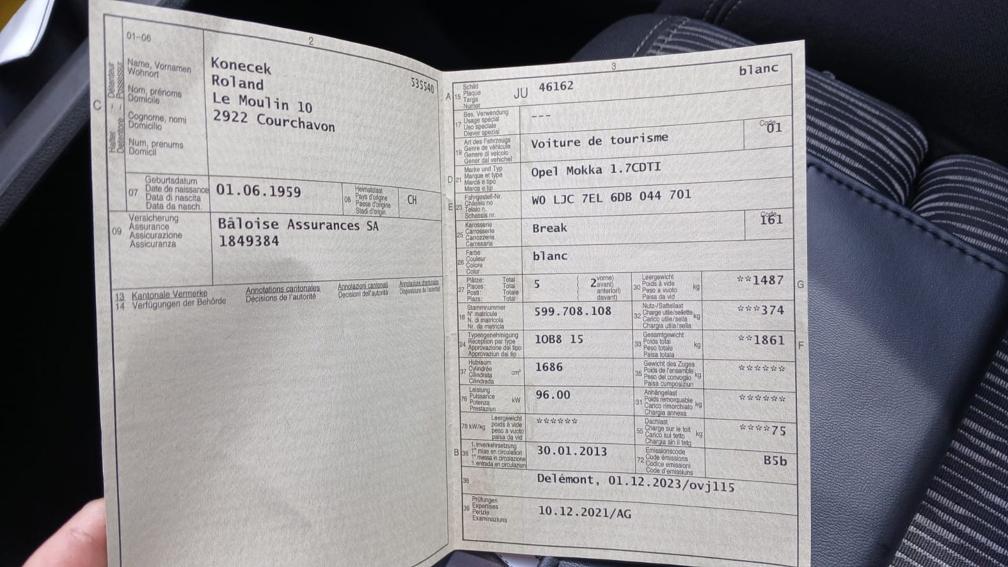 2
01-06
C
Name, Vornamen
Wohnort
Nom, prénoms
Domicile
Cognome, nomi
Domicilio
Num, prenums
Domicil
Konecek
Roland
Le Moulin 10
2922 Courchavon
535540
07
Geburtsdatum
Date de naissance
Data di nascita
Data da nasch.
01.06.1959
Heimatstaat
CH
09
Versicherung
Assurance
Assicurazione
Assicuranza
Bâloise Assurances SA
1849384
13 Kantonale Vermerke
14 Verfügungen der Behörde
Annotations cantonales
Décisions de l'autorité
Annotazioni cantonali
Decisioni dell'autorità
3
A 15
Schild
Plaque
Targa
Numer
JU 46162
blanc
17
Bes. Verwendung
Usage spécial
Uso speciale
Diever spezial
---
19
Art des Fahrzeugs
Genre de véhicule
Genere di veicolo
Gener dal vehichel
Voiture de tourisme
Code
01
D 21
Marke und Typ
Marque et type
Marca e tipo
Marca e tip
Opel Mokka 1.7CDTI
E 23
Fahrgestell-Nr.
Châssis no
Telaio n.
Schassis nr.
W0 LJC 7EL 6DB 044 701
25
Karosserie
Carrosserie
Carrozzeria
Carrossaria
Break
Code
161
26
Farbe
Couleur
Colore
Color
blanc
27
Plätze: Total
Places: Total
Posti: Totale
Plazs: Total
5 ( 2
vorne)
avant)
anteriori)
davant)
30
Leergewicht
Poids à vide
Peso a vuoto
Paisa da vid
kg
☆☆1487
G
18
Stammnummer
N° matricule
N. di matricola
Nr. da matricla
599.708.108
32
Nutz-/Sattellast
Charge utile/sellette
Carico utile/sella
Chargia utila/sella
kg
☆☆☆374
24
Typengenehmigung
Réception par type
Approvazione del tipo
Approvaziun dal tip
1OB8 15
33
Gesamtgewicht
Poids total
Peso totale
Paisa totala
kg
☆☆1861
F
37
Hubraum
Cylindrée
Cilindrata
Cilindrada
cm³
1686
35
Gewicht des Zuges
Poids de l'ensemble
Peso del convoglio
Paisa cumposiziun
kg
☆☆☆☆☆☆
76
Leistung
Puissance
Potenza
Prestaziun
kW
96.00
31
Anhängelast
Poids remorquable
Carico rimorchiato
Chargia annexa
kg
☆☆☆☆☆☆
78 kW/kg
Leergewicht
poids à vide
peso a vuoto
paisa da vid
☆☆☆☆☆☆
55
Dachlast
Charge sur le toit
Carico sul tetto
Chargia sin il tetg
kg
☆☆☆☆75
B 36
1. Inverkehrsetzung
1re mise en circulation
1a messa in circolazione
1. entrada en circulaziun
30.01.2013
72
Emissionscode
Code émissions
Codice emissioni
Code d'emissiuns
B5b
38
Delémont, 01.12.2023/ovj115
39
Prüfungen
Expertises
Perizie
Examinaziuns
10.12.2021/AG